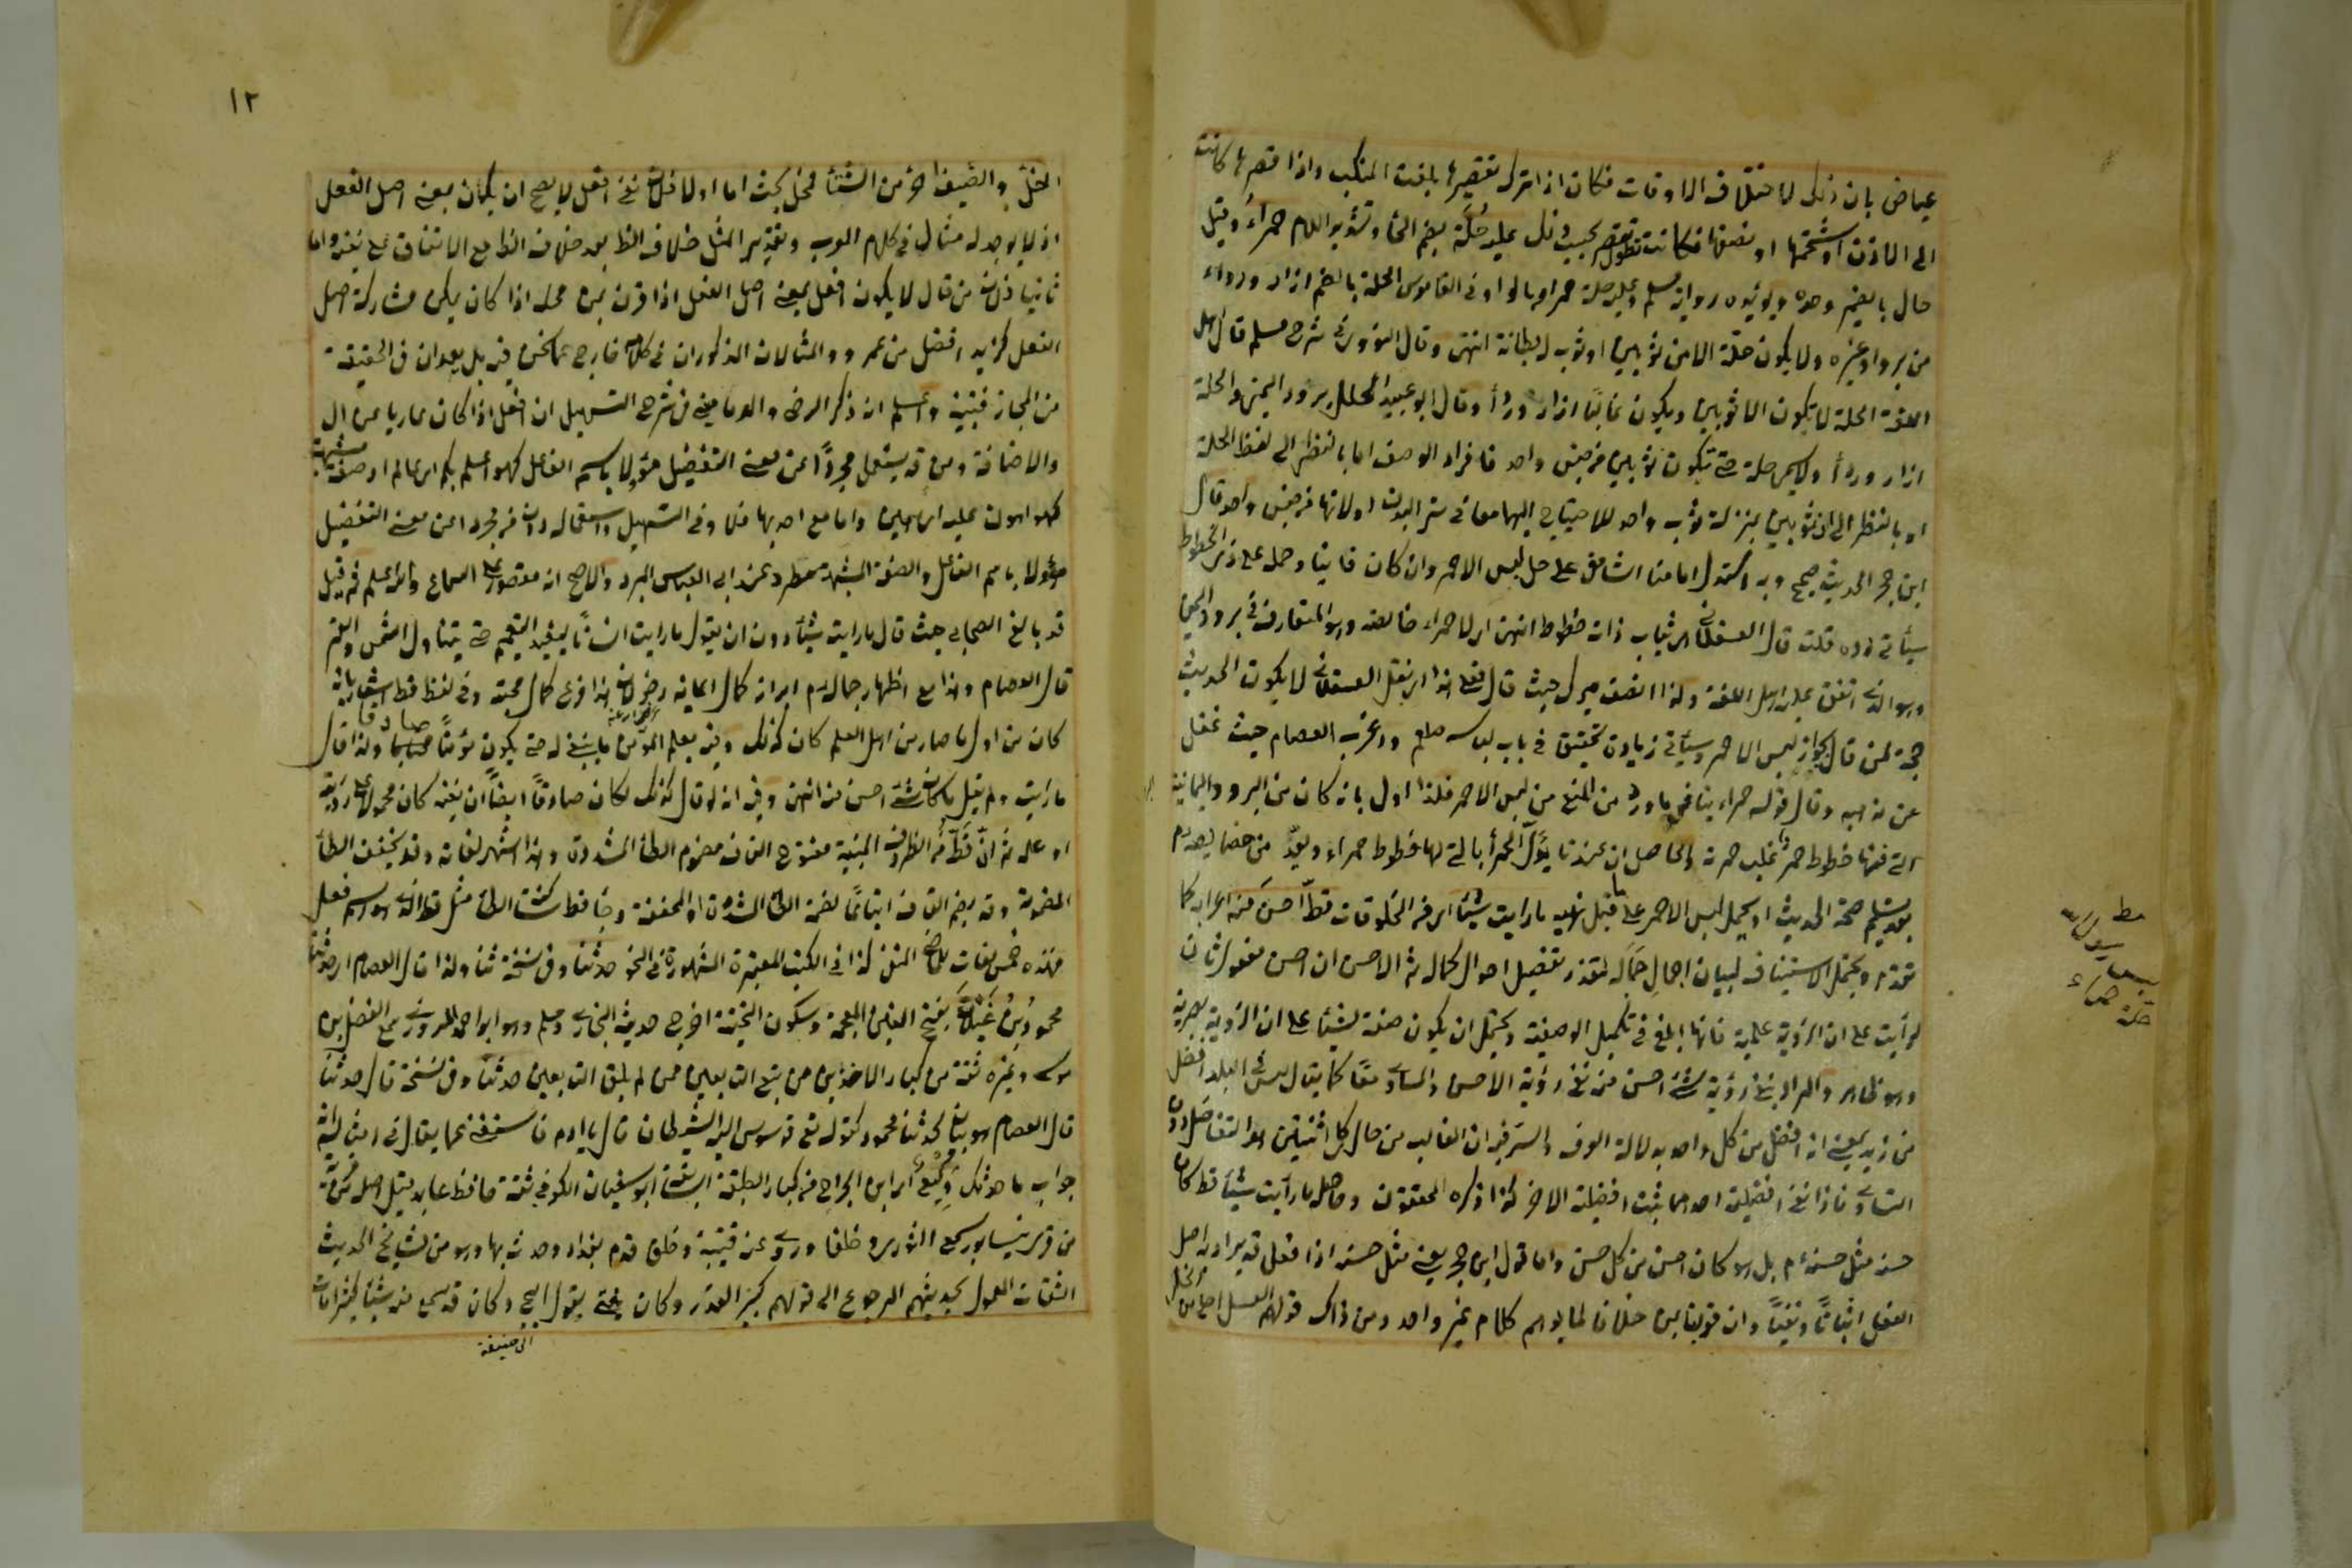 عياض بان ذلك لاختلاف الاوقات فكان اذا ترك تقصيرها بلغت المنكب واذا قصرها كانت
الى الاذن او شحمتها او نصفها فكانت تطول وتقصر بحسب ذلك عليه حُلَّة بضم الحاء وتشديد اللام حمراءُ وقيل
حال بالضمير وحده ويؤيده رواية مسلم وعليه حلة حمراء بالواو وفى القاموس الحلة بالضم ازار ورداء
من برد او غيره ولا يكون حلة الا من ثوبين او ثوب له بطانة انتهى وقال النووى فى شرح مسلم قال اهل
اللغة الحلة لا يكون الا ثوبين ويكون غالبًا ازار ورداء وقال ابو عبيد الحلل برود اليمن والحلة
ازار ورداء ولا يسمى حلة حتى تكون ثوبين من جنس واحد فافراد الوصف اما بالنظر الى لفظ الحلة
او بالنظر الى ان الثوبين بمنزلة ثوب واحد للاحتياج اليهما معا فى ستر البدن او لانهما من جنس واحد قال
ابن حجر الحديث صحيح وبه استدل امامنا الشافعى على حل لبس الاحمر وان كان قانيا وحمله على ذى الخطوط
سيأتى رده قلت قال العسقلانى هى ثياب ذات خطوط انتهى اى لا حمراء خالصة وهو المتعارف فى برود اليمن
وهو الذى اتفق عليه اهل اللغة ولذا انصف ميرك حيث قال فعلى هذا اى نقل العسقلانى لا يكون الحديث
حجة لمن قال بجواز لبس الاحمر وسيأتى زيادة تحقيق فى باب لباسه صلعم واغرب العصام حيث غفل
عن مذهبه وقال قوله حمراء ينافى ما ورد من المنع من لبس الاحمر فلذا اول بانه كان من البرود اليمانية
التى فيها خطوط حمر تغلب حمرة والحاصل ان عندنا يؤوّل الحمراء بالتى لها خطوط حمراء ويعدّ من خصايصه م
بعد تسليم صحة الحديث او يحمل لبس الاحمر على ما قبل نهيه ما رايت شيئا اى من المخلوقات قطّ احسن منه اعرابه كما
تقدم ويحتمل الاستيناف لبيان اجمال جماله لتعذر تفصيل احوال كماله ثم الاحسن ان احسن مفعول ثان
لرايت على ان الرؤية علمية فانها ابلغ فى تكميل الوصفية ويحتمل ان يكون صفة لشيئا على ان الرؤية بصرية
وهو ظاهر والمراد بنفى رؤية شىء احسن منه نفى رؤية الاحسن والمساوى معًا كما يقال ليس فى البلد افضل
من زيد بمعنى انه افضل من كل واحد بدلالة العرف والسر فيه ان الغالب من حال كل اثنين هو التفاضل دون
التساوى فاذا نفى افضلية احدهما ثبت افضلية الاخر كذا ذكره المحققون وحاصله ما رأيت شيئا قط كان
حسنه مثل حسنه م بل هو كان احسن من كل حسن واما قول ابن حجر يعنى مثل حسنه اذا افعل قد يراد به اصل
الفعل اثباتًا ونفيًا وان قرن بمن خلافا لما يوهم كلام غير واحد ومن ذاك قولهم العسل احلى من الخل
مط
لباس رسول الله
حلة حمراء
١٢
الخل والصيف احر من الشتاء فمحل بحث اما اولا فلان نفى افعل لا يصح ان يكون بمعنى اصل الفعل
اذ لا يوجد له مثال فى كلام العرب وتقدير المثل خلاف الظ بعد خلاف الظ مع الاتفاق على نفيه واما
ثانيا فلان من قال لا يكون افعل بمعنى اصل الفعل اذا قرن بمن محله اذا كان يمكن مشاركة اصل
الفعل كزيد افضل من عمرو والمثالان المذكوران فى كلامه خارج عما نحن فيه بل يعدان فى الحقيقة
من المجاز فتنبه واعلم انه ذكر الرضى والدمامينى فى شرح التسهيل ان افعل اذا كان عاريا عن ال
والاضافة ومن قد يستعمل مجردًا عن معنى التفضيل مؤولا باسم الفاعل كهو اعلم بكم اى عالم او صفة مشبهة
كهو اهون عليه اى هين واما مع احدها فلا وفى التسهيل واستعماله دون من مجردا عن معنى التفضيل
مؤولا باسم الفاعل والصفة المشبهة مطرد عند ابى العباس المبرد والاصح انه مقصور على السماع والله اعلم ثم قيل
قد بالغ الصحابى حيث قال ما رايت شيئا دون ان يقول ما رايت انسانًا ليفيد التعميم حتى يتناول الشمس والقمر
قال العصام وهذا مع اظهار جماله م ابراز كمال ايمانه رض لان هذا فرع كمال محبته وفى لفظ قط اشعار بانه
كان من اول ما صار من اهل العلم كان كذلك وفيه يعلم المؤمن ما ينبغى له حتى يكون مؤمنًا صادقا ولذا قال
ما رايت ولم يقل ما كان شىء احسن منه انتهى وفيه انه لو قال كذلك لكان صادقًا ايضًا لان نفيه كان محمولا على رؤيته
او علمه ثم ان قطّ من الظروف المبنية مفتوح القاف مضموم الطاء المشددة وهذا اشهر لغاته وقد يخفف الطاء
المضمومة وقد يضم القاف اتباعًا لضمة الطاء المشددة او المخففة وجاء قط ساكنة الطاء مثل قط الذى هو اسم فعل
فهذه خمس لغات للماضى المنفى كذا فى الكتب المعتبرة المشهورة فى النحو حدثنا وفى نسخة ثنا ولذا قال العصام اى حدثنا
محمود بن غيلان بفتح الغين المعجمة وسكون التحتية اخرج حديثه البخارى ومسلم وهو ابو احمد المروزى سمع الفضل بن
موسى وغيره ثقة من كبار الاخذين من تبع التابعين ممن لم يلق التابعين حدثنا وفى نسخة قال حدثنا
قال العصام هو بيان لحدثنا محمود كقوله تع فوسوس اليه الشيطان قال يا ادم فاستغنى عما يقال فى امثاله انه
جواب ما حدثك وكيع اى ابن الجراح من كبار الطبقة التاسعة ابو سفيان الكوفى ثقة حافظ عابد قيل اصله من قرية
من قرى نيسابور سمع الثورى وخلقا وروى عنه قتيبة وخلق قدم بغداد وحدث بها وهو من مشايخ الحديث
الثقات المعول بحديثهم المرجوع الى قولهم كبير القدر وكان يفتى بقول ابى وكان قد سمع منه شيئا كثيرا مات
ابى حنيفة